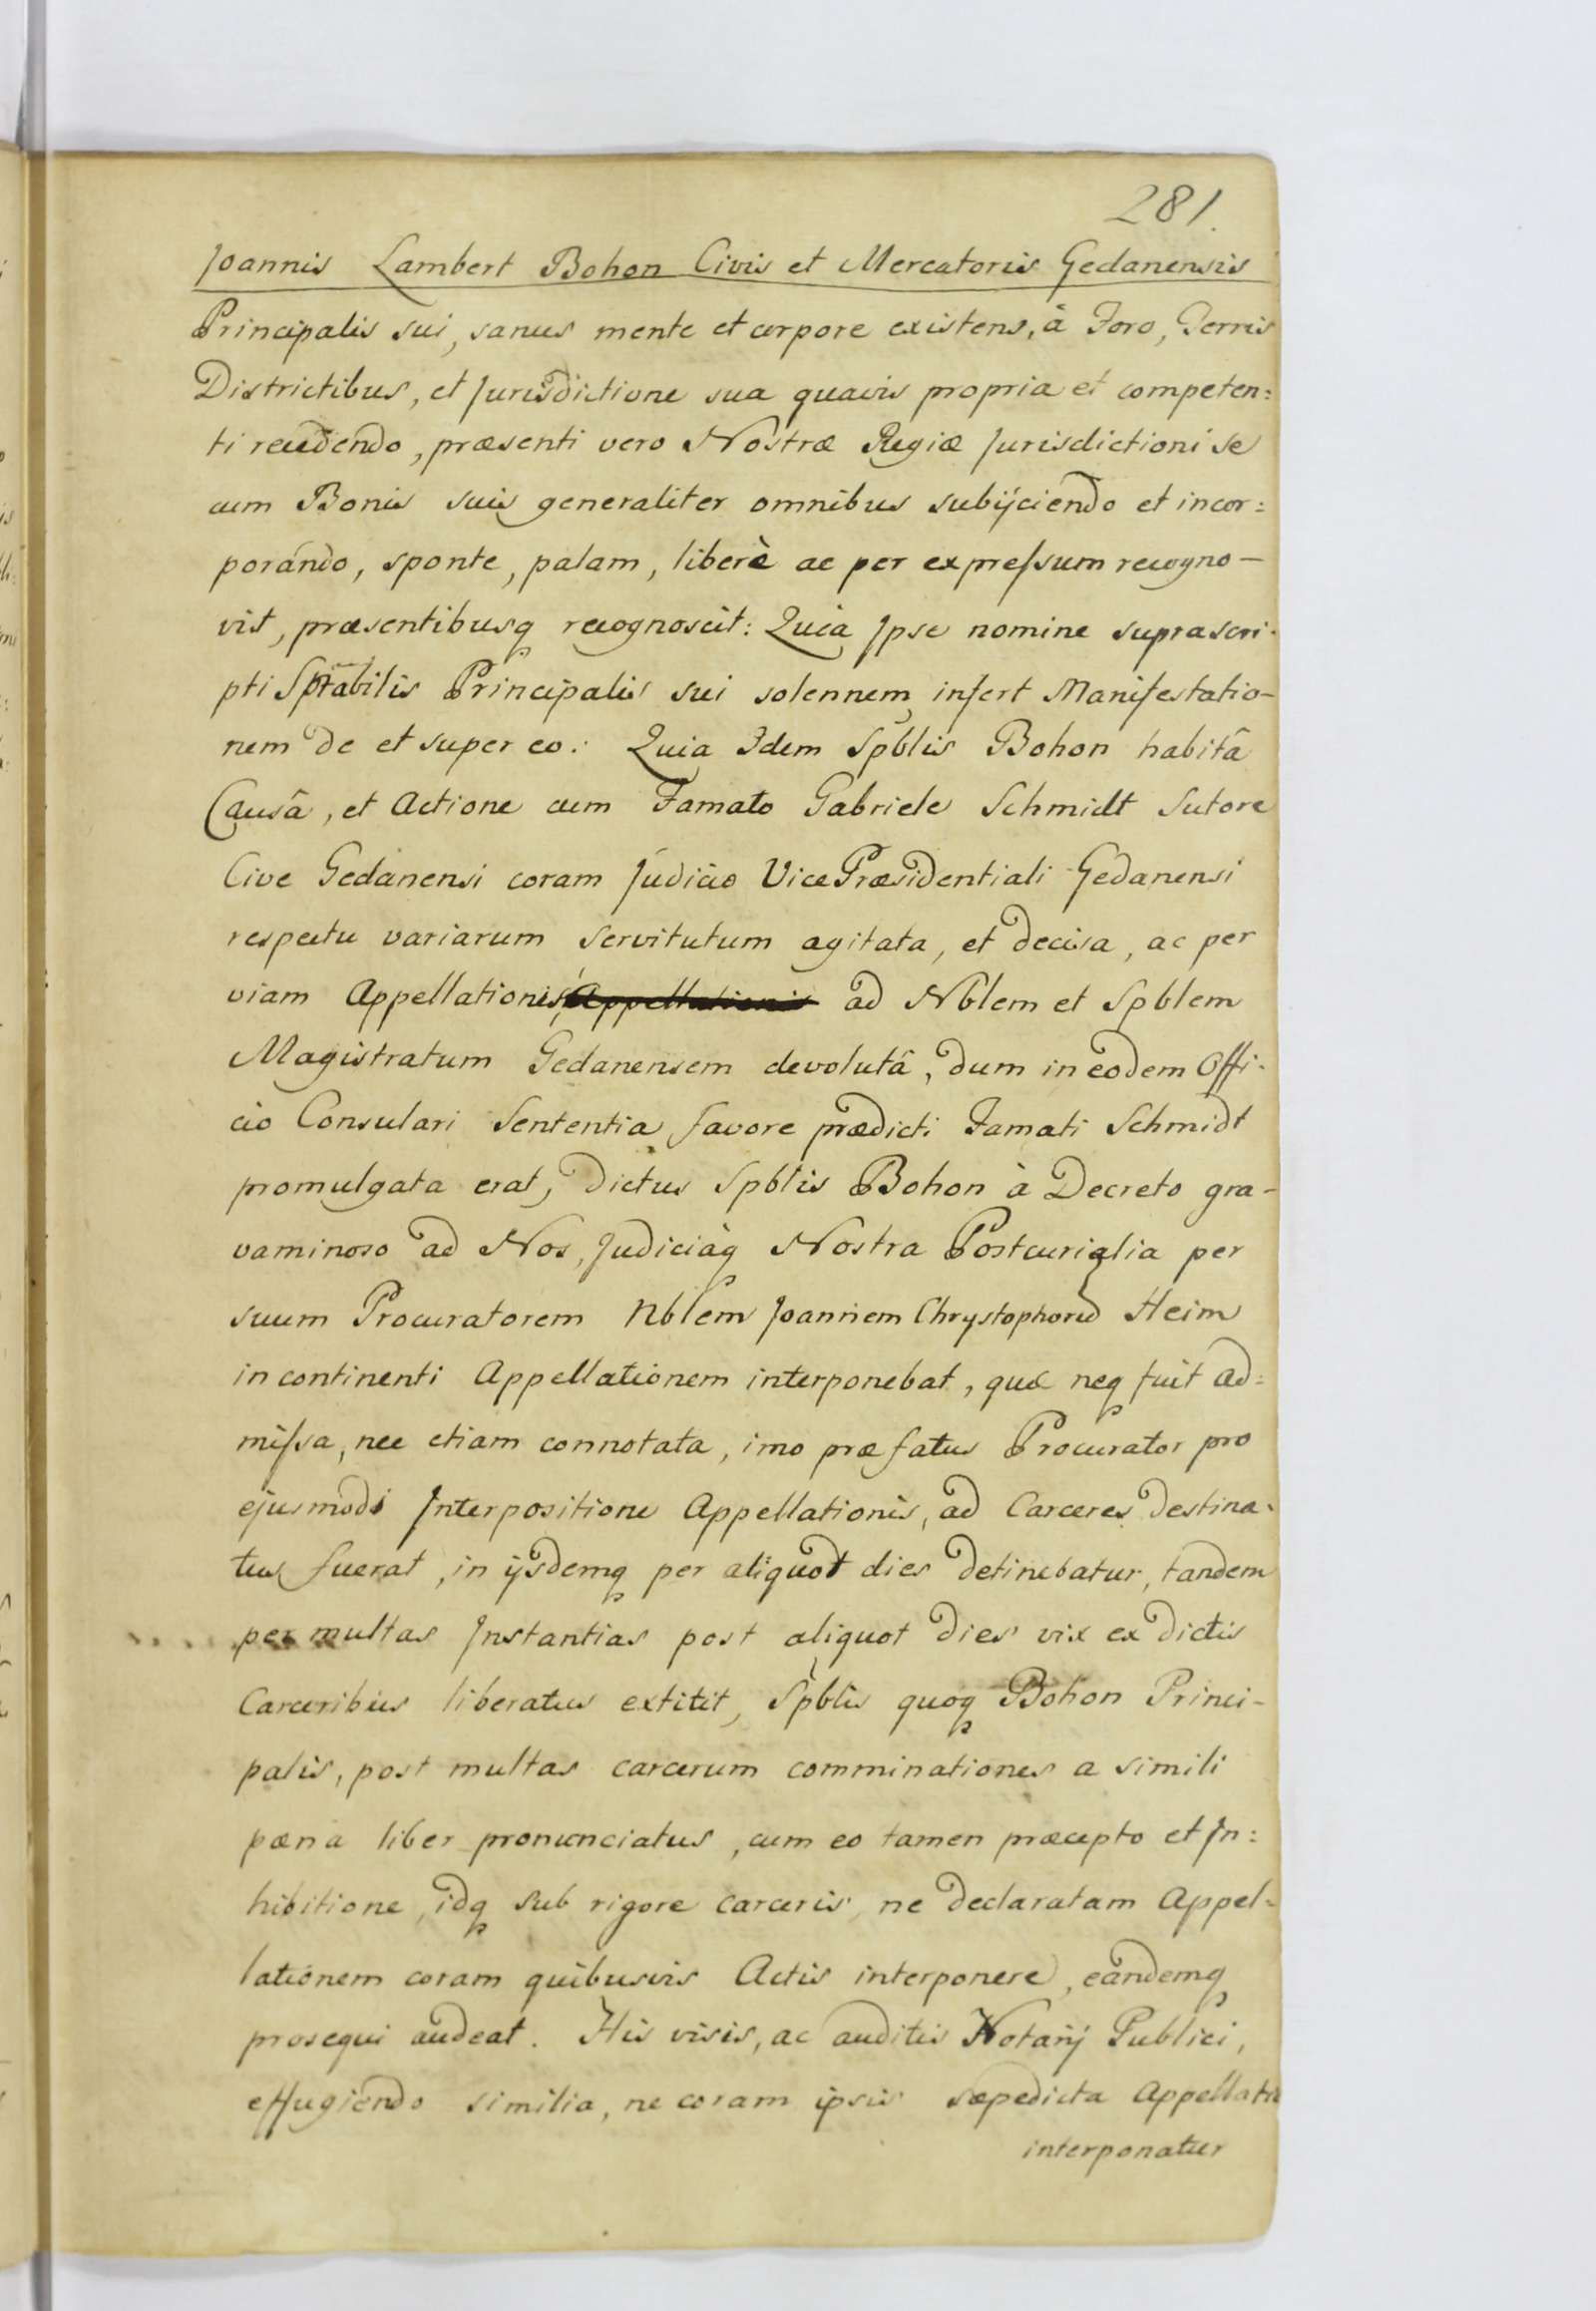 281.
Joannis Lambert Bohon Civis et Mercatoris Gedanensis
Principalis sui, sanus mente et corpore existens, à Foro, Terris
Districtibus, et Jurisdictione sua quavis propria et competen:
ti recedendo, præsenti vero Nostræ Regiæ Jurisdictioni se
cum Bonis suis generaliter omnibus subijciendo et incor:
porando, sponte, palam, liberè ac per expressum recogno-
vit, præsentibusq recognoscit: Quia Ipse nomine suprascri-
pti Sptabilis Principalis sui solennem infert Manifestatio-
nem de et super eo: Quia Idem Spblis Bohon habitâ
Causâ, et Actione cum Famato Gabriele Schmidt Sutore
Cive Gedanensi coram Judicio Vice Præsidentiali Gedanensi
respectu variarum Servitutum agitata, et decisa, ac per
viam Appellationis, Appellationis ad Nblem et Spblem
Magistratum Gedanensem devolutâ, dum in eodem Offi-
cio Consulari Sententia favore prædicti Famati Schmidt
promulgata erat, dictus Spblis Bohon à Decreto gra-
vaminoso ad Nos, Judiciaq Nostra Postcurialia per
suum Procuratorem Nblem Joannem Chrystophorū Heim
in continenti Appellationem interponebat, quæ neq fuit ad:
missa, nec etiam connotata, imo præfatus Procurator pro
ejusmodi Interpositione Appellationis, ad Carceres destina-
tus fuerat, in ijsdemq per aliquot dies detinebatur, tandem
per multas Instantias post aliquot dies vix ex dictis
Carceribus liberatus extitit, Spblis quoq Bohon Princi-
palis, post multas carcerum comminationes a simili
pæna liber pronunciatus, cum eo tamen præcepto et In:
hibitione, idq sub rigore carceris, ne declaratam Appel-
lationem coram quibusvis Actis interponere, eandemq
prosequi audeat. His visis, ac auditis Notarij Publici,
effugiendo similia, ne coram ipsis sæpedicta Appellatio
interponatur